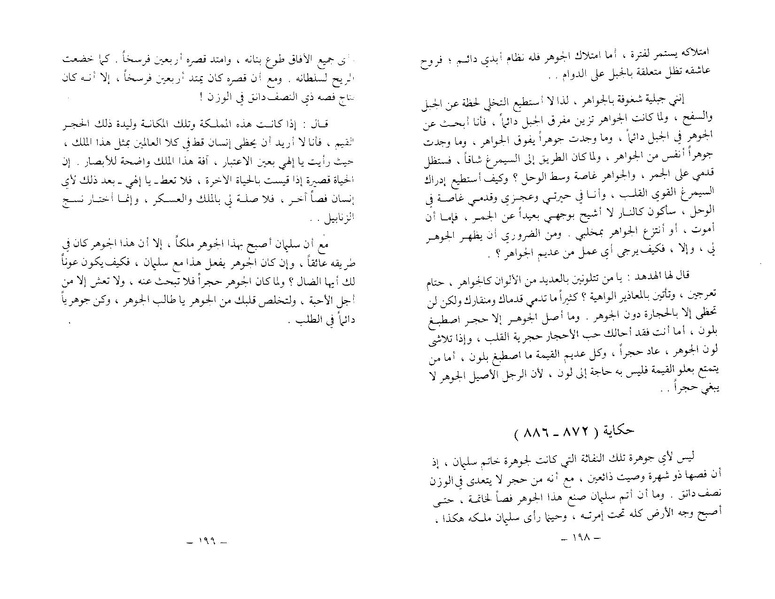 امتلاكه يستمر لفترة ، أما امتلاك الجوهر فله نظام أبدي دائم ؛ فروح
عاشقه تظل متعلقة بالجبل على الدوام . .
إنني جبلية شغوفة بالجواهر ، لذا لا أستطيع التخلي لحظة عن الجبل
والسفح ، ولما كانت الجواهر تزين مفرق الجبل دائماً ، فأنا أبحث عن
الجوهر في الجبل دائماً ، وما وجدت جوهراً يفوق الجوهر ، وما وجدت
جوهراً أنفس من الجواهر ، ولما كان الطريق إلى السيمرغ شاقاً ، فستظل
قدمي على الجمر ، والجواهر غاصة وسط الوحل ؟ وكيف أستطيع إدراك
السيمرغ القوي القلب ، وأنا في حيرتي وعجزي وقدمي غاصة في
الوحل ، سأكون كالنار لا أشيح بوجهي بعيداً عن الجمر ، فإما أن
أموت ، أو أنتزع الجواهر بمخلبي . ومن الضروري أن يظهر الجوهر
لي ، وإلا ، فكيف يرجى أي عمل من عديم الجوهر ؟ .
قال لها الهدهد : يا من تتلونين بالعديد من الألوان كالجواهر ، حتام
تعرجين ، وتأتين بالمعاذير الواهية ؟ كثيراً ما تدمي قدماك ومنقارك ولكن لن
تحظى إلا بالحجارة دون الجوهر . وما أصل الجوهر إلا حجر اصطبغ
بلون ، أما أنت فقد أحالك حب الأحجار حجرية القلب ، وإذا تلاشى
لون الجوهر ، عاد حجراً ، وكل عديم القيمة ما اصطبغ بلون ، أما من
يتمتع بعلو القيمة فليس به حاجة إلى لون ، لأن الرجل الأصيل الجوهر لا
يبغي حجراً . .
حكاية ( ٨٧٢ - ٨٨٦ )
ليس لأي جوهرة تلك النفائة التي كانت لجوهرة خاتم سليمان ، إذ
أن فصها ذو شهرة وصيت ذائعين ، مع أنه من حجر لا يتعدى في الوزن
نصف دانق . وما أن أتم سليمان صنع هذا الجوهر فصاً لخاتمة ، حتى
أصبح وجه الأرض كله تحت إمرته ، وحينما رأى سليمان ملكه هكذا .
– ١٩٨ –
رأى جميع الآفاق طوع بنانه ، وامتد قصره أربعين فرسخاً . كما خضعت
الريح لسلطانه . ومع أن قصره كان يمتد أربعين فرسخاً ، إلا أنه كان
نتاج فصه ذي النصف دانق في الوزن !
قـال : إذا كـانت هـذه المملكة وتلك المكانة وليدة ذلك الحجر
القيم ، فأنا لا أريد أن يحظى إنسان قط في كلا العالمين بمثل هذا الملك ،
حيث رأيت يا إلهي بعين الاعتبار ، آفة هذا الملك واضحة للأبصار . إن
الحياة قصيرة إذا قيست بالحياة الآخرة ، فلا تعط ـ يا إلهي ـ بعد ذلك لأي
إنسان فصاً آخر ، فلا صلة لي بالملك والعسكر ، وإنما أختار نسج
الزنابيل . .
مع أن سليمان أصبح بهذا الجوهر ملكاً ، إلا أن هذا الجوهر كان في
طريقه عائقاً ، وإن كان الجوهر يفعل هذا مع سليمان ، فكيف يكون عوناً
لك أيها الضال ؟ ولما كان الجوهر حجراً فلا تبحث عنه ، ولا تعش إلا من
أجل الأحبة ، ولتخلص قلبك من الجوهر يا طالب الجوهر ، وكن جوهرياً
دائماً في الطلب .
– ١٩٩ –